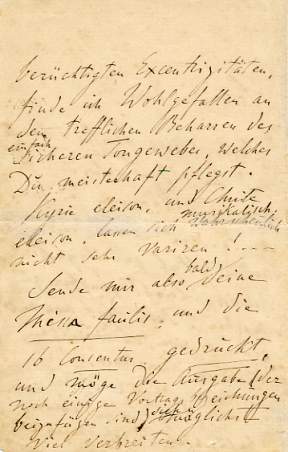 berüchtigten Excentrizitäten,
finde ich Wohlgefallen an
dem trefflichen Beharren des
einfach
sicheren Tongewebes, welches
Du meisterhaft pflegst.
Kyrie eleison, und Christe
musikalisch
eleison, lassen sich
nicht sehr variren! –––
bald
Sende mir also Deine
Missa
und die
16 Concentus gedruckt,
und möge die Ausgabe (der
noch einige Vortrags
beizufügen sind) sich möglichst
viel verbreiten.